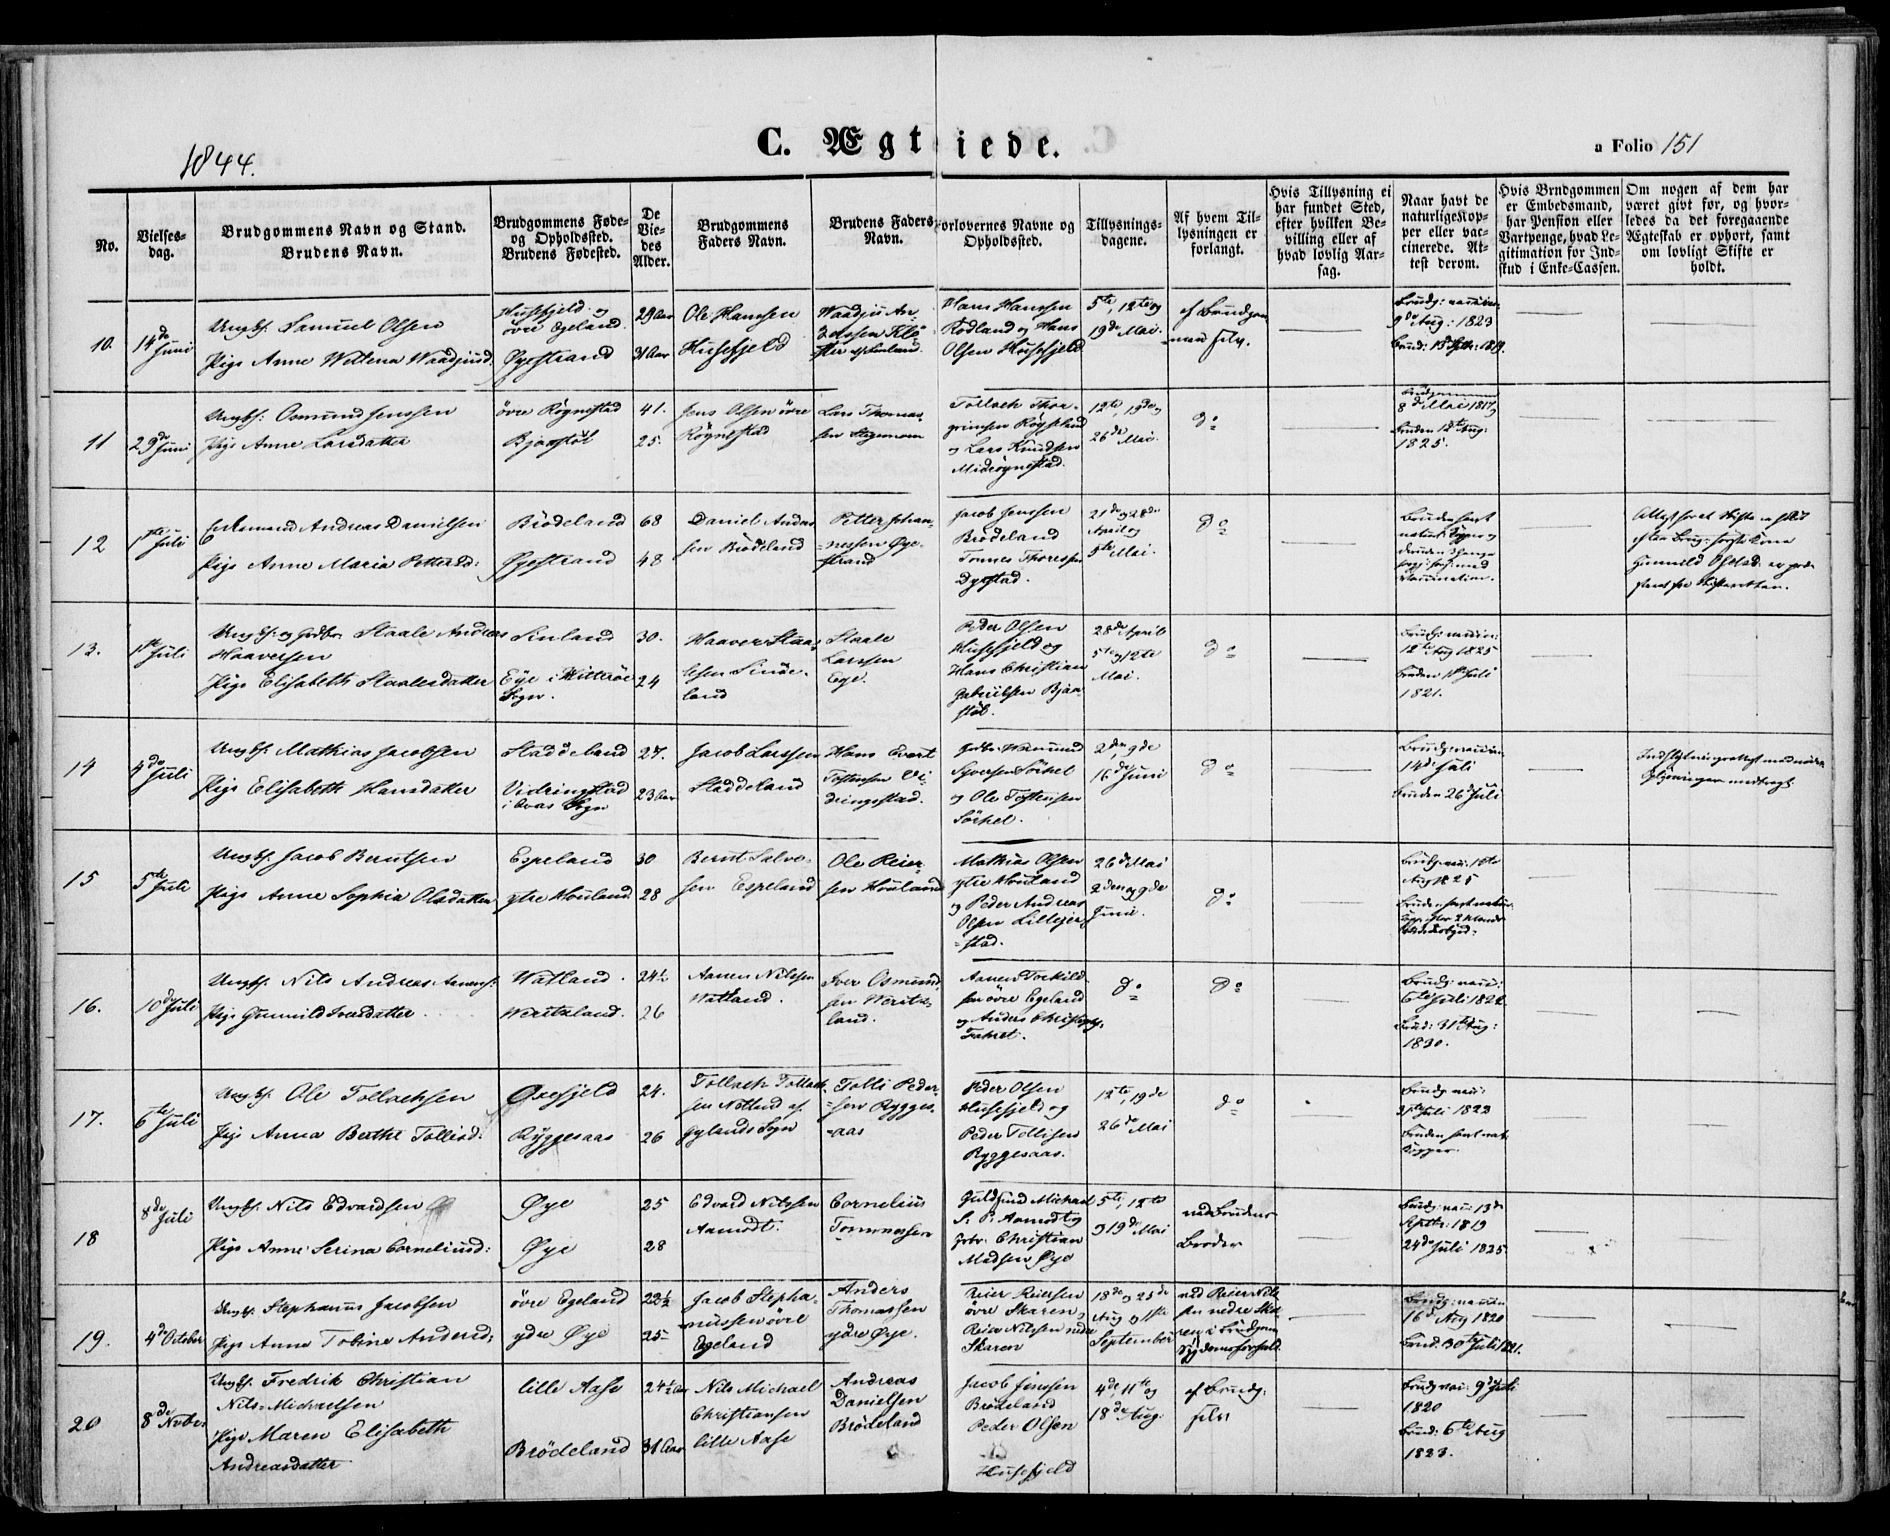 1844.
C. Ægteviede.
a Folio 151
No.
Vielses-
dag.
Brudgommens Navn og Stand.
Brudens Navn.
Brudgommens Føde-
og Opholdssted.
Brudens Fødested.
De
Vie-
des
Alder.
Brudgommens
Faders Navn.
Brudens Faders
Navn.
orlovernes Navne og
Opholdssted.
Tillysnings-
dagene.
Af hvem Til-
lysningen er
forlangt.
Hvis Tillysning ei
har fundet Sted,
efter hvilken Be-
villing eller af
hvad lovlig Aar-
sag.
Naar havt de
naturlige Kop-
per eller vac-
cinerede. At-
test derom.
Hvis Brudgommen
er Embedsmand,
har Pension eller
Vartpenge, hvad Le-
gitimation for Ind-
skud i Enke-Cassen.
Om nogen af dem har
været givt før, og hvor-
ledes da det foregaaende
Ægteskab er ophort, samt
om lovligt Skifte er
holdt.
10.
14de
Juni
Ungk. Samuel Olsen
Pige Anne Wilhelmina Waadjusd.
Husefjeld og
övre Egeland
Øyestrand
29 Aar
31 Aar
Ole Hanssen
Husefjeld
Waadju An-
Hans Hanssen
Rødland og Hans
Olsen Husefjeld
5te, 12te og
19de Mai.
af Brudgom
men selv.
Brudg: vaccin:
9de Aug: 1823
11
29de
Juni
Ungk: Osmund Jenssen
Pige Anne Larsdatter
övre Røgnestad
Bjørstöl
41.
25.
Jens Olsen övre
Røgnestad
Lars Thomas-
sen
Tollach Thor-
grimsen
og Lars Knudsen
Midrøgnestad.
12te, 19de og
26de Mai.
do
8de Mai
Bruden 12te Aug:
1825.
12
1ste
Juli
Enkemand Andreas Danielsen
Pige Anne Maria Petersd:
Brödeland
Øyestrand
68
48
Daniel Anders
sen Brödeland
Petter Johan-
nessen Øye-
strand
Jacob Jenssen
Brödeland
Tønnes Thoressen
Dyrstad.
21de og 28de
April og
5te Mai.
do
13.
1ste Juli
Ungk: og Staale Andreas
Haaversen
Pige Elisabeth Staalesdatter
Sinland
Eye i Hitterøe
Sogn.
30.
24
Haaver Staa-
lesen
land
Staale
Larssen
Eye.
Peder Olsen
Husefjeld og
Hans Christian
Gabrielsen Bjør-
stöl.
28de April
5te og 12te
Mai.
do
Brudg: vaccin:
12te Aug 1825
Bruden 1ste Juli
1821.
14
4de
Juli
Ungk. Mathias Jacobsen
Pige Elisabeth Hansdatter
Staddeland
Vidringstad
i Qvas Sogn
27.
23 Aar
Jacob Larssen
Staddeland
Hans Evert
Tostensen Vi-
dringstad.
Syversen Sörhel
og Ole Tostensen
Sörhel.
2den, 9de
16de Juni
do
14de Juli
Bruden 26de Juli
15
5te
Juli
Ungk. Jacob Berntsen
Pige Anne Sophia Olsdatter
Espeland
ytre Houland
30
28
Bernt Salve-
sen Espeland
Ole Reier-
sen Houland
Mathias Olsen
ytre Houland
og Peder Andreas
Olsen Lillejer-
stad.
26de Mai
2den og 9de
Juni.
do
16.
10de
Juli
Ungk. Nils Andreas Aanens:
Pige Gunnild Iversdatter
Watland.
Weritzland.
24½
26
Aanen Nilssen
Watland.
Iver Osmund
sen Weritz-
land.
Aanen Torkild
sen övre Egeland
og Anders
do
do
Brudg: vaccin:
6te Juli
Brud: 31te Aug:
1830.
17.
6te
Juli
Ungk. Ole Tollachsen
Pige Anna Berthe Tollisd:
Øxefjeld
Ryggesaas
24.
26
Tollach Tollach-
sen
Gylands Sogn
Tolli Peder-
sen Rygges-
aas
Peder Olsen
Husefjeld og
Peder Tollisen
Ryggesaas.
12te, 19de
26de Mai
do
Juli 1823
Bruden havt nat.
Kopper.
18
8de
Juli
Ungk. Nils Edvardsen
Pige Anne Serina Corneliusd:
Øye
Øye
25
28
Edvard Nilssen
Aamodt.
Cornelius
Tønnessen
Guldsmed Michael
Aamodt og
Christian
Madsen Øye
5te, 12te
og 19de Mai
ved Brudens
Broder
Brudg: vac: 13de
Septbr: 1819
24de Juli 1825
19.
4de October
Ungk. Stephanus Jacobsen
Pige Anna Tobine Andersd:
övre Egeland
ydre Øye
22½
25
Jacob Stepha-
nussen övre
Egeland
Anders
Thomassen
ydre Øye.
Reier Reiersen
övre Skaren og
Reier Nilssen nedre
Skaren
18de og 25de
Aug og 1ste
September
ved Reier Nils
sen nedre Ska
ren i Brudgom
Sygdomsforfald.
Brudg: vaccin
16de Aug 1820
Brud: 30te Juli 1821.
20
8de Nvbr.
Ungk. Fredrik Christian
Nils-Michaelsen
Pige Maren Elisabeth
Andreasdatter
lille Aase
Brödeland
24½ Aar
31 Aar
Nils Michael
Christiansen
lille Aase
Andreas
Danielsen
Brödeland
Jacob Jenssen
Brödeland
Peder Olsen
Husefjeld
4de, 11te og
18de Aug:
af Brudg:
selv
Brudg vac: 9de Juli
1820
Brud: 6te Aug
1823.